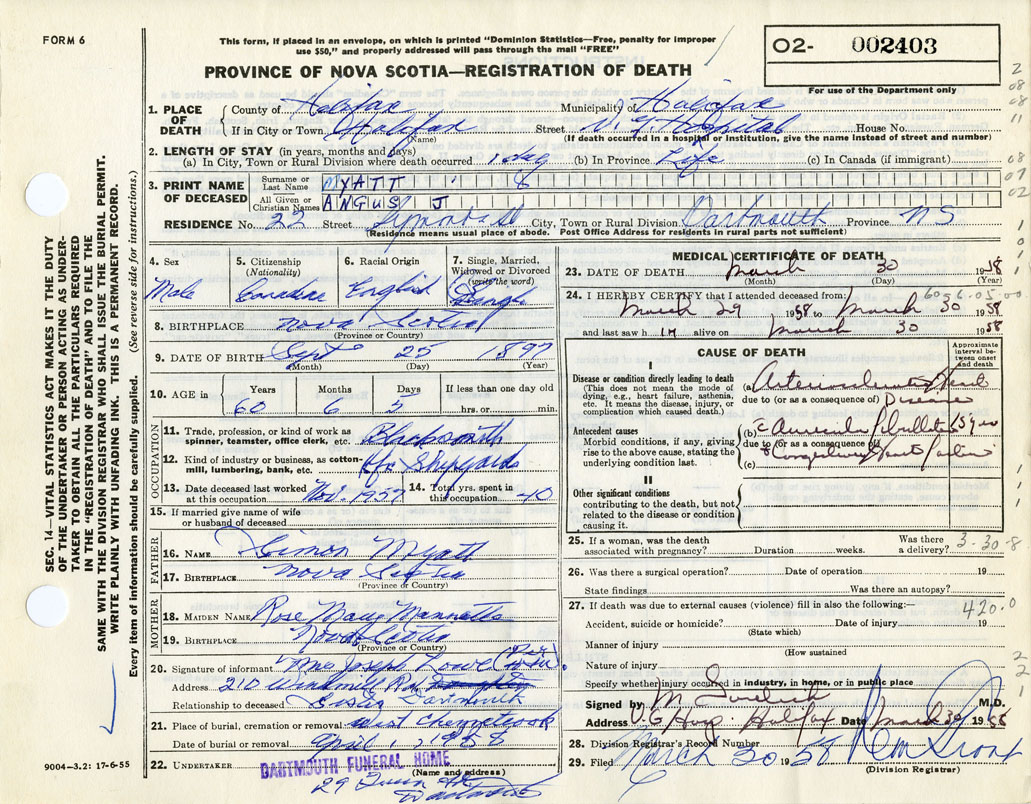 FORM 6
This form, if placed in an envelope, on which is printed "Dominion Statistics—Free, penalty for improper
use $50," and properly addressed will pass through the mail "FREE"
PROVINCE OF NOVA SCOTIA—REGISTRATION OF DEATH
02- 002403
For use of the Department only
1. PLACE OF DEATH County of Halifax Municipality of Halifax
If in City or Town Halifax Street V. G. Hospital House No.
(Name) (If death occurred in a hospital or institution, give the name instead of street and number)
2. LENGTH OF STAY (in years, months and days)
(a) In City, Town or Rural Division where death occurred 1 day (b) In Province Life (c) In Canada (if immigrant)
3. PRINT NAME OF DECEASED Surname or Last Name MYATT
All Given or Christian Names ANGUS J
RESIDENCE No. 22 Street City, Town or Rural Division Dartmouth Province NS
(Residence means usual place of abode. Post Office Address for residents in rural parts not sufficient)
4. Sex Male
5. Citizenship (Nationality) Canadian
6. Racial Origin English
7. Single, Married, Widowed or Divorced (write the word) Single
8. BIRTHPLACE Nova Scotia
(Province or Country)
9. DATE OF BIRTH Sept 25 1897
(Month) (Day) (Year)
10. AGE in Years 60 Months 6 Days 5 If less than one day old hrs. or min.
OCCUPATION
11. Trade, profession, or kind of work as spinner, teamster, office clerk, etc. Blacksmith
12. Kind of industry or business, as cotton-mill, lumbering, bank, etc. Hfx Shipyards
13. Date deceased last worked at this occupation Nov. 1957 14. Total yrs. spent in this occupation 40
15. If married give name of wife or husband of deceased
FATHER
16. NAME Simon Myatt
17. BIRTHPLACE Nova Scotia
(Province or Country)
MOTHER
18. MAIDEN NAME Rose Mary Mannette
19. BIRTHPLACE Nova Scotia
(Province or Country)
20. Signature of informant Mrs Joseph Lowe
Address 210 Windmill Rd Dartmouth
Relationship to deceased
21. Place of burial, cremation or removal West Chezzetcook
Date of burial or removal April 1, 1958
22. UNDERTAKER DARTMOUTH FUNERAL HOME
(Name and address)
29 Queen St
Dartmouth
9004—3.2: 17-6-55
MEDICAL CERTIFICATE OF DEATH
23. DATE OF DEATH March 30 1958
(Month) (Day) (Year)
24. I HEREBY CERTIFY that I attended deceased from:
March 29 1958 to March 30 1958
and last saw him alive on March 30 1958
CAUSE OF DEATH
Approximate interval between onset and death
I
Disease or condition directly leading to death
(This does not mean the mode of dying, e.g., heart failure, asthenia, etc. It means the disease, injury, or complication which caused death.)
(a) Arteriosclerotic Heart
due to (or as a consequence of) Disease
Antecedent causes
Morbid conditions, if any, giving rise to the above cause, stating the underlying condition last.
(b) c Auricular fibrillation
due to (or as a consequence of)
& Congestive Heart Failure
(c)
II
Other significant conditions
contributing to the death, but not related to the disease or condition causing it.
25. If a woman, was the death associated with pregnancy? Duration weeks. Was there a delivery?
3-30-8
26. Was there a surgical operation? Date of operation 19
State findings Was there an autopsy?
27. If death was due to external causes (violence) fill in also the following:—
420.0
Accident, suicide or homicide? Date of injury 19
(State which)
Manner of injury
(How sustained
Nature of injury
Specify whether injury occurred in industry, in home, or in public place
Signed by M.D.
Address V. G. Hosp. Halifax Date March 30 1958
28. Division Registrar's Record Number
29. Filed March 30 1958
(Division Registrar)
SEC. 14—VITAL STATISTICS ACT MAKES IT THE DUTY
OF THE UNDERTAKER OR PERSON ACTING AS UNDER-
TAKER TO OBTAIN ALL THE PARTICULARS REQUIRED
IN THE "REGISTRATION OF DEATH" AND TO FILE THE
SAME WITH THE DIVISION REGISTRAR WHO SHALL ISSUE THE BURIAL PERMIT.
WRITE PLAINLY WITH UNFADING INK. THIS IS A PERMANENT RECORD.
Every item of information should be carefully supplied. (See reverse side for instructions.)